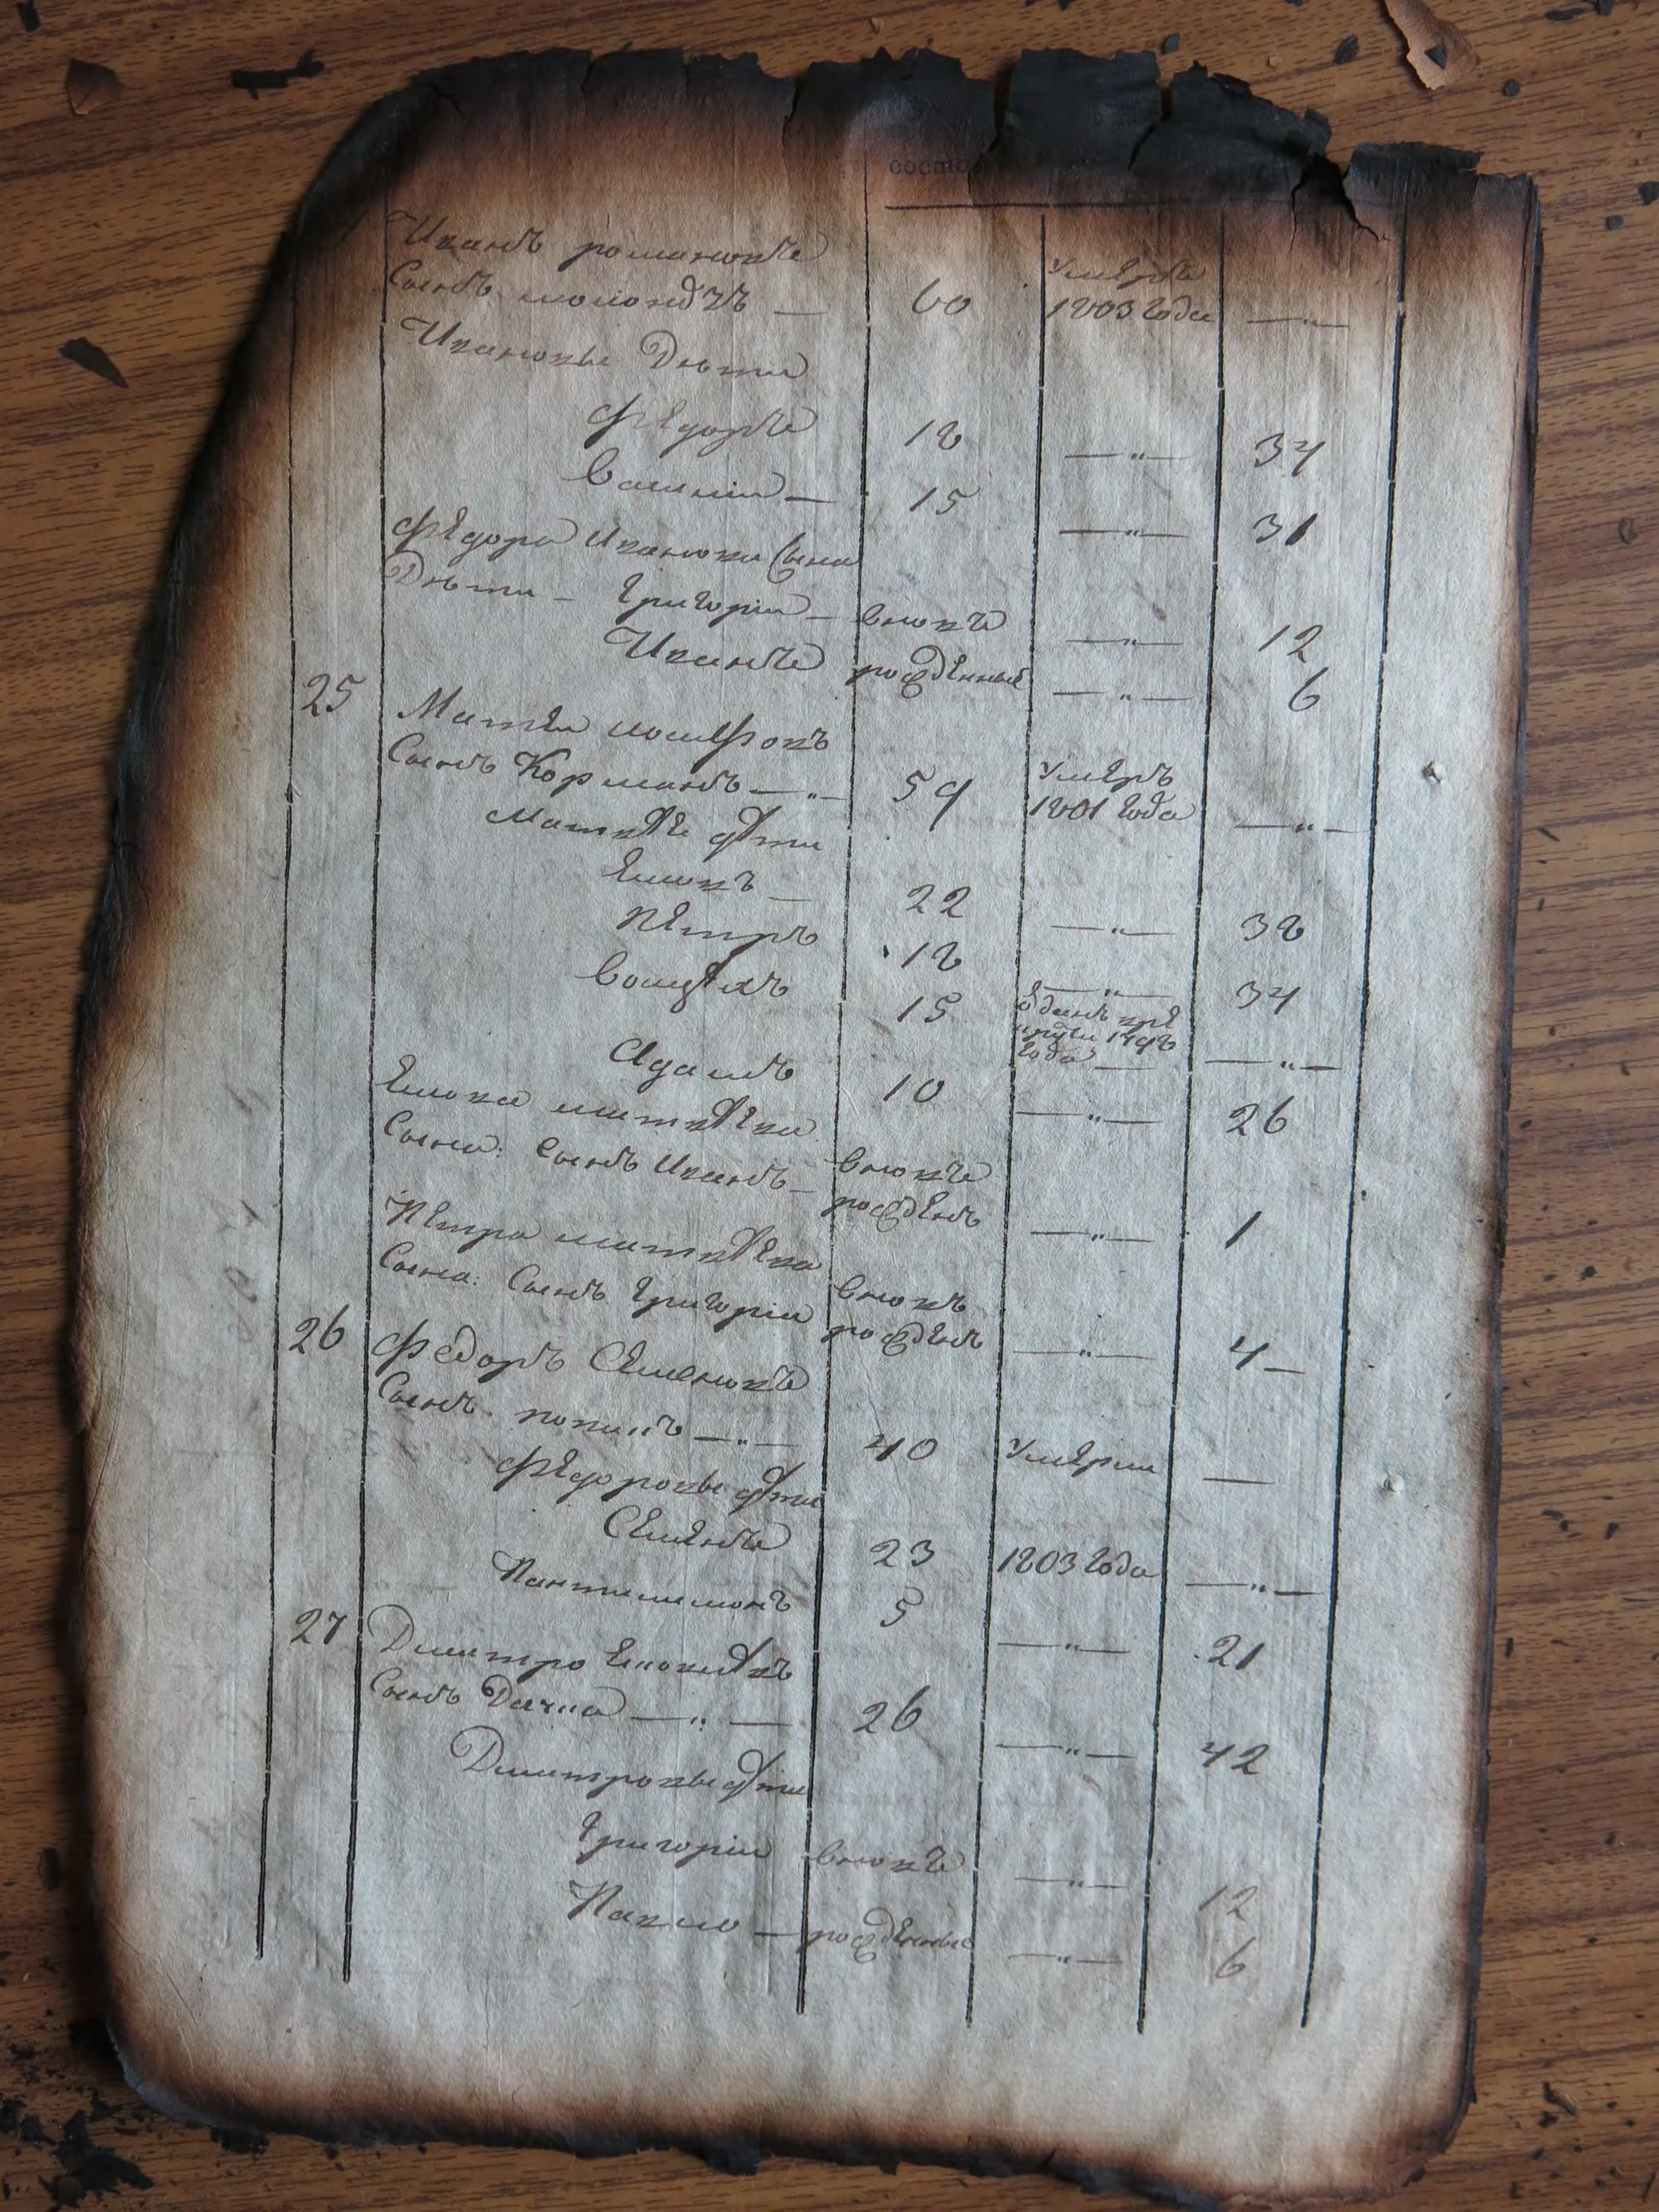 состо
Иванъ романовъ Умеръ
Сынъ 60 1803 года —
Ивановы Дѣти
Федоръ 18 —"— 34
Василий — 15 —"— 31
Федора Иванова Сына
Дѣти — Григорий — вновь —"— 12
Иванъ рожденные —"— 6
25 Матвей
Сынъ Корманъ —"— 59 Умеръ 1801 года —"—
Матвѣевы дѣти
22 —"— 38
Петръ 18 —"— 34
Войтѣхъ 15 Отданъ в рекруты 1798 года — —"—
Адамъ 10 —"— 26
матвѣева
Сына: Сынъ Иванъ — вновь рожденъ —"— 1
Петра матвѣева
Сына: Сынъ Григорий вновь рожденъ —"— 4 —
26 Федоръ Семеновъ
Сынъ —"— 40 Умерли —
Федоровы дѣти
Семенъ 23 1803 года —"—
Пантилимонъ 5 —"— 21
27 Дмитро
Сынъ —"— 26 —"— 42
Дмитровы дѣти
Григорий вновь —"— 12
Павло — рожденные —"— 6